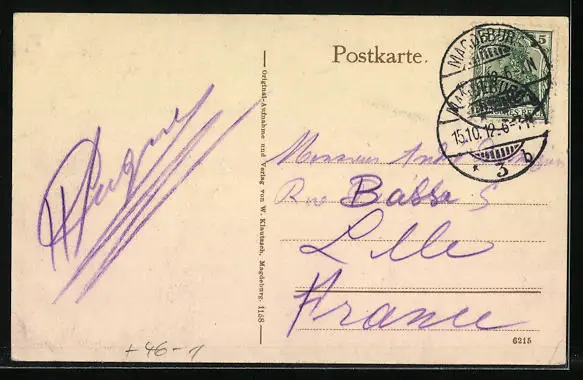 Postkarte.
5
MAGDEBURG
MAGDEBURG
15.10.12.6-7N.
* 3 b
Original-Aufnahme und Verlag von W. Klautzsch, Magdeburg. 1158
Monsieur André
Rue Basse 5
Lille
France
6215
+46-1